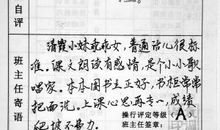 自评
班主任寄语
清霞小妹乖乖女，普通话儿很标
准。课文朗读有感情，是个小小歌
唱家。本本图书主正好，书柜常常
把西洗。上课心思再专一，成绩
纪坡不费力。
操行评定等级：A
班主任签章：